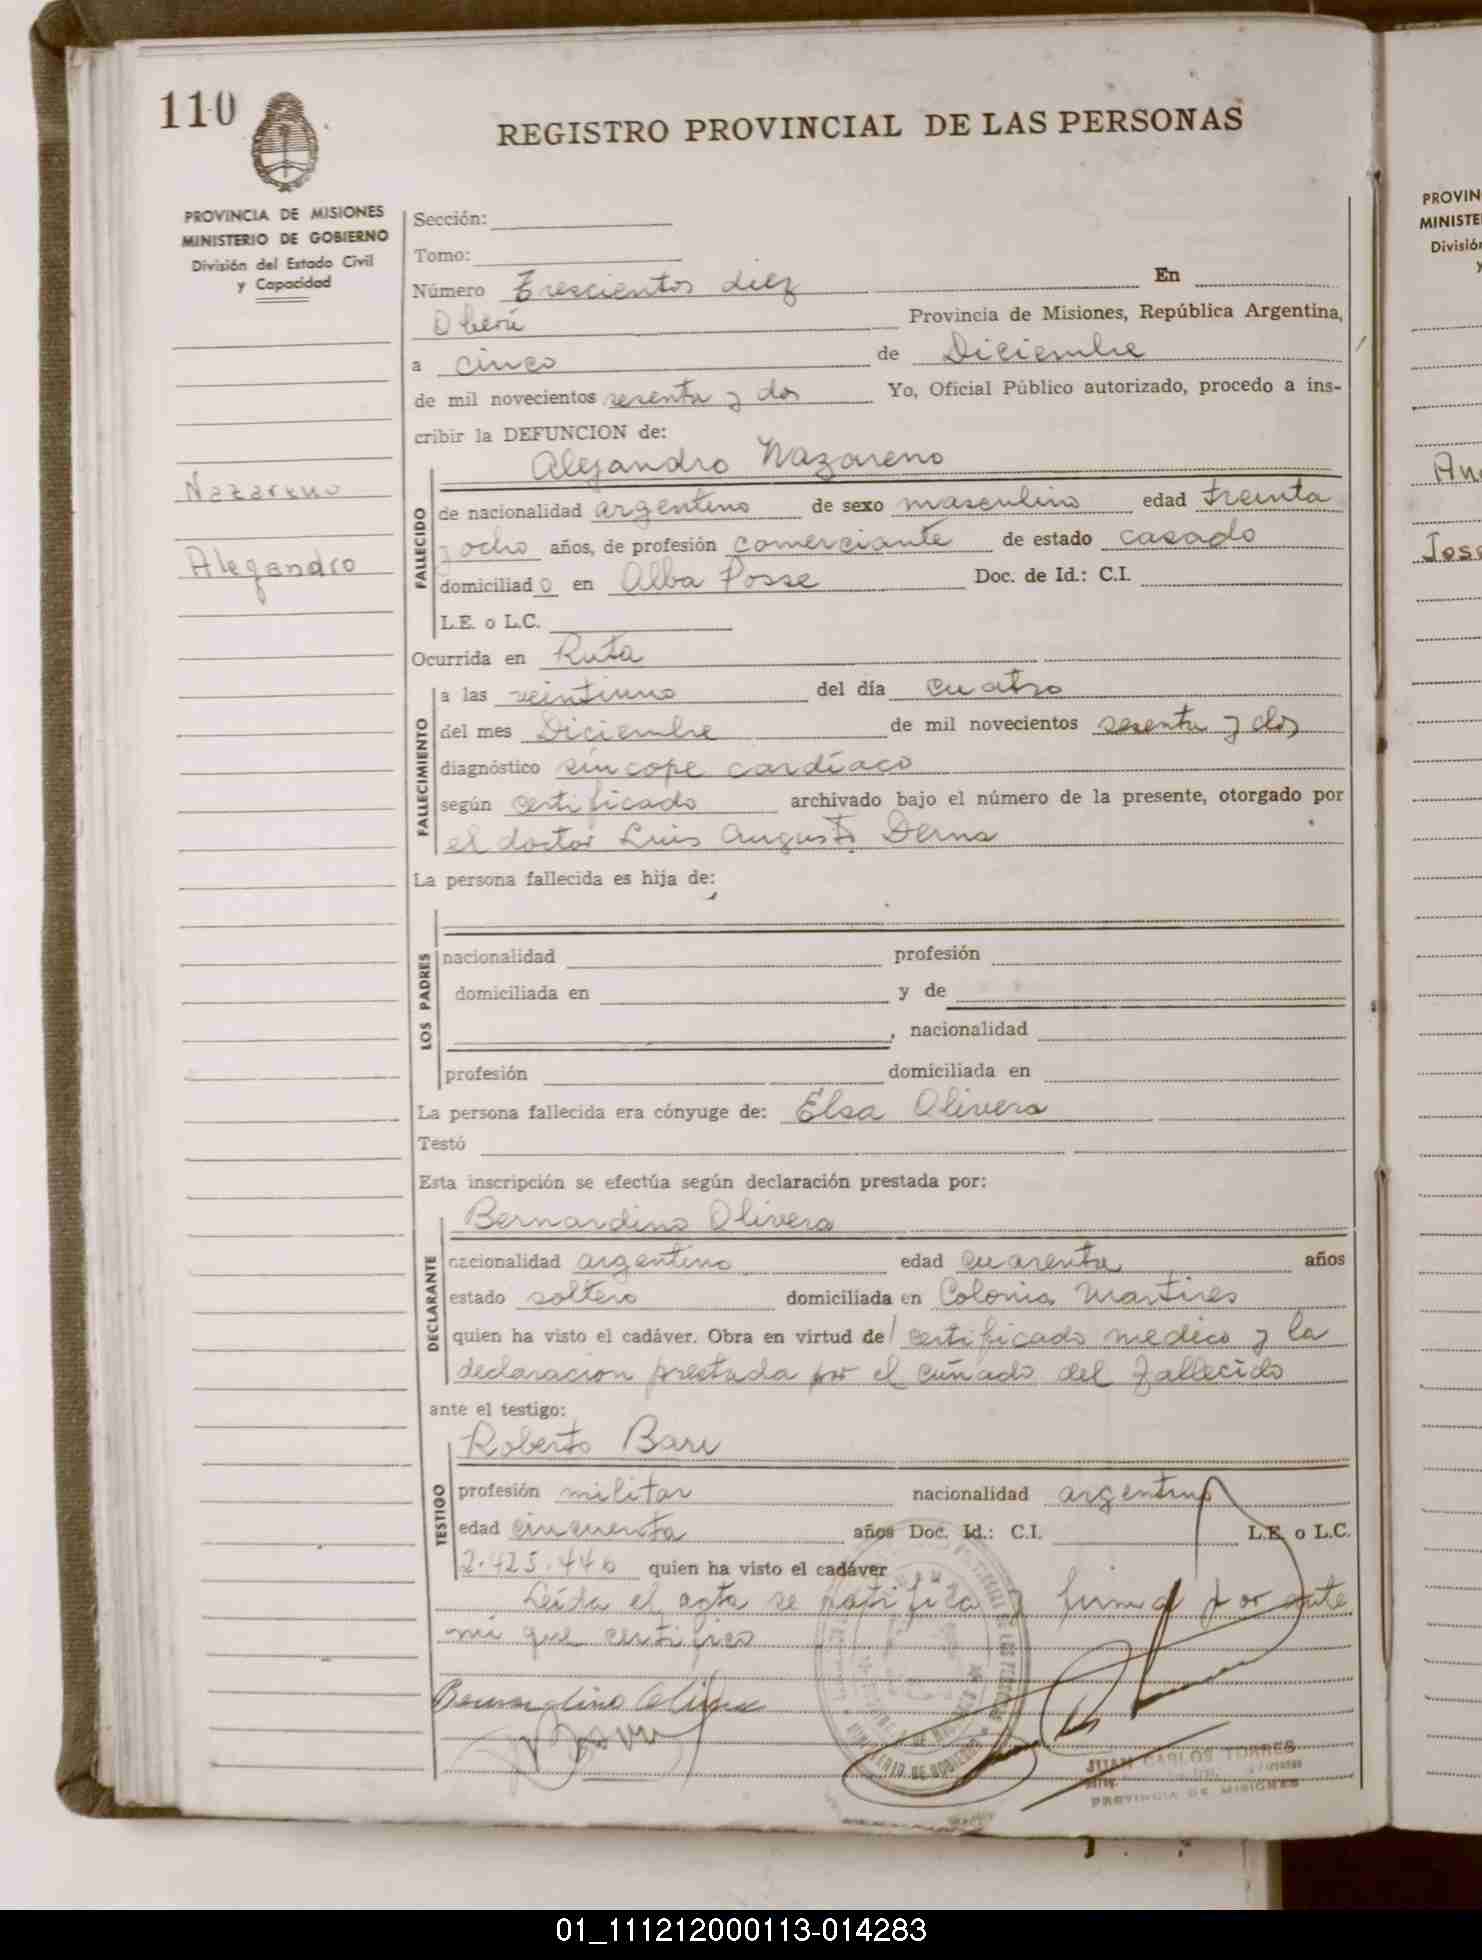 110
REGISTRO PROVINCIAL DE LAS PERSONAS
PROVINCIA DE MISIONES
MINISTERIO DE GOBIERNO
División del Estado Civil
y Capacidad
Nazareno
Alejandro
Sección:
Tomo:
Número Trescientos diez En
Oberá Provincia de Misiones, República Argentina,
a cinco de Diciembre
de mil novecientos sesenta y dos Yo, Oficial Público autorizado, procedo a ins-
cribir la DEFUNCION de:
Alejandro Nazareno
FALLECIDO
de nacionalidad argentino de sexo masculino edad treinta
y ocho años, de profesión comerciante de estado casado
domiciliado en Alba Posse Doc. de Id.: C.I.
L.E. o L.C.
Ocurrida en Ruta
FALLECIMIENTO
a las veintiuno del día cuatro
del mes Diciembre de mil novecientos sesenta y dos
diagnóstico síncope cardíaco
según certificado archivado bajo el número de la presente, otorgado por
el doctor Luis Augusto Derna
La persona fallecida es hija de:
LOS PADRES
nacionalidad profesión
domiciliada en y de
, nacionalidad
profesión domiciliada en
La persona fallecida era cónyuge de: Elsa Olivera
Testó
Esta inscripción se efectúa según declaración prestada por:
Bernardino Olivera
DECLARANTE
nacionalidad argentino edad cuarenta años
estado soltero domiciliada en Colonia Martires
quien ha visto el cadáver. Obra en virtud de certificado medico y la
declaracion prestada por el cuñado del fallecido
ante el testigo:
Roberto Bari
TESTIGO
profesión militar nacionalidad argentino
edad cincuenta años Doc. Id.: C.I. L.E. o L.C.
2.425.446 quien ha visto el cadáver
Leída el acta se ratifica y firma por ante
mi que certifico
Bernardino Olivera
JUAN CARLOS TORRES
PROVINCIA DE MISIONES
PROVIN
MINISTE
División
y
An
Jose
01_111212000113-014283